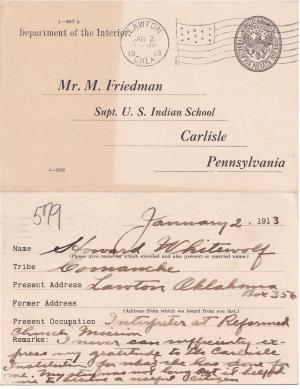 1-367 a
Department of the Interior.
LAWTON
JAN 2
1913
OKLA.
Mr. M. Friedman
Supt. U. S. Indian School
Carlisle
Pennsylvania
579
January 2, 1913
Name Howard Whitewolf
(Please give name by which enrolled and also present or married name.)
Tribe Comanche
Present Address Lawton Oklahoma
Box 356
Former Address
(Address from which we heard you last.)
Present Occupation Interpreter at Reformed
Church Mission
Remarks: I never can sufficiently ex-
press my gratitude to the Carlisle
Institute for what it has done for
me. My stay was not long but it helped
me to become a useful citizen